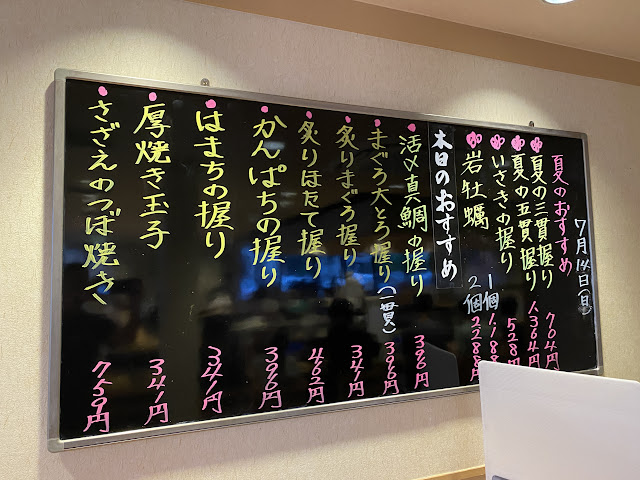 7月14日(日)
夏のおすすめ
夏の三貫握り 704円
夏の五貫握り 1,364円
いさきの握り 528円
岩牡蠣 1個 1,188円
2個 2288円
本日のおすすめ
活〆真鯛の握り 396円
まぐろ大とろ握り(一貫) 396円
炙りまぐろ握り 341円
炙りほたて握り 462円
かんぱちの握り 396円
はまちの握り 341円
厚焼き玉子 341円
さざえのつぼ焼き 759円